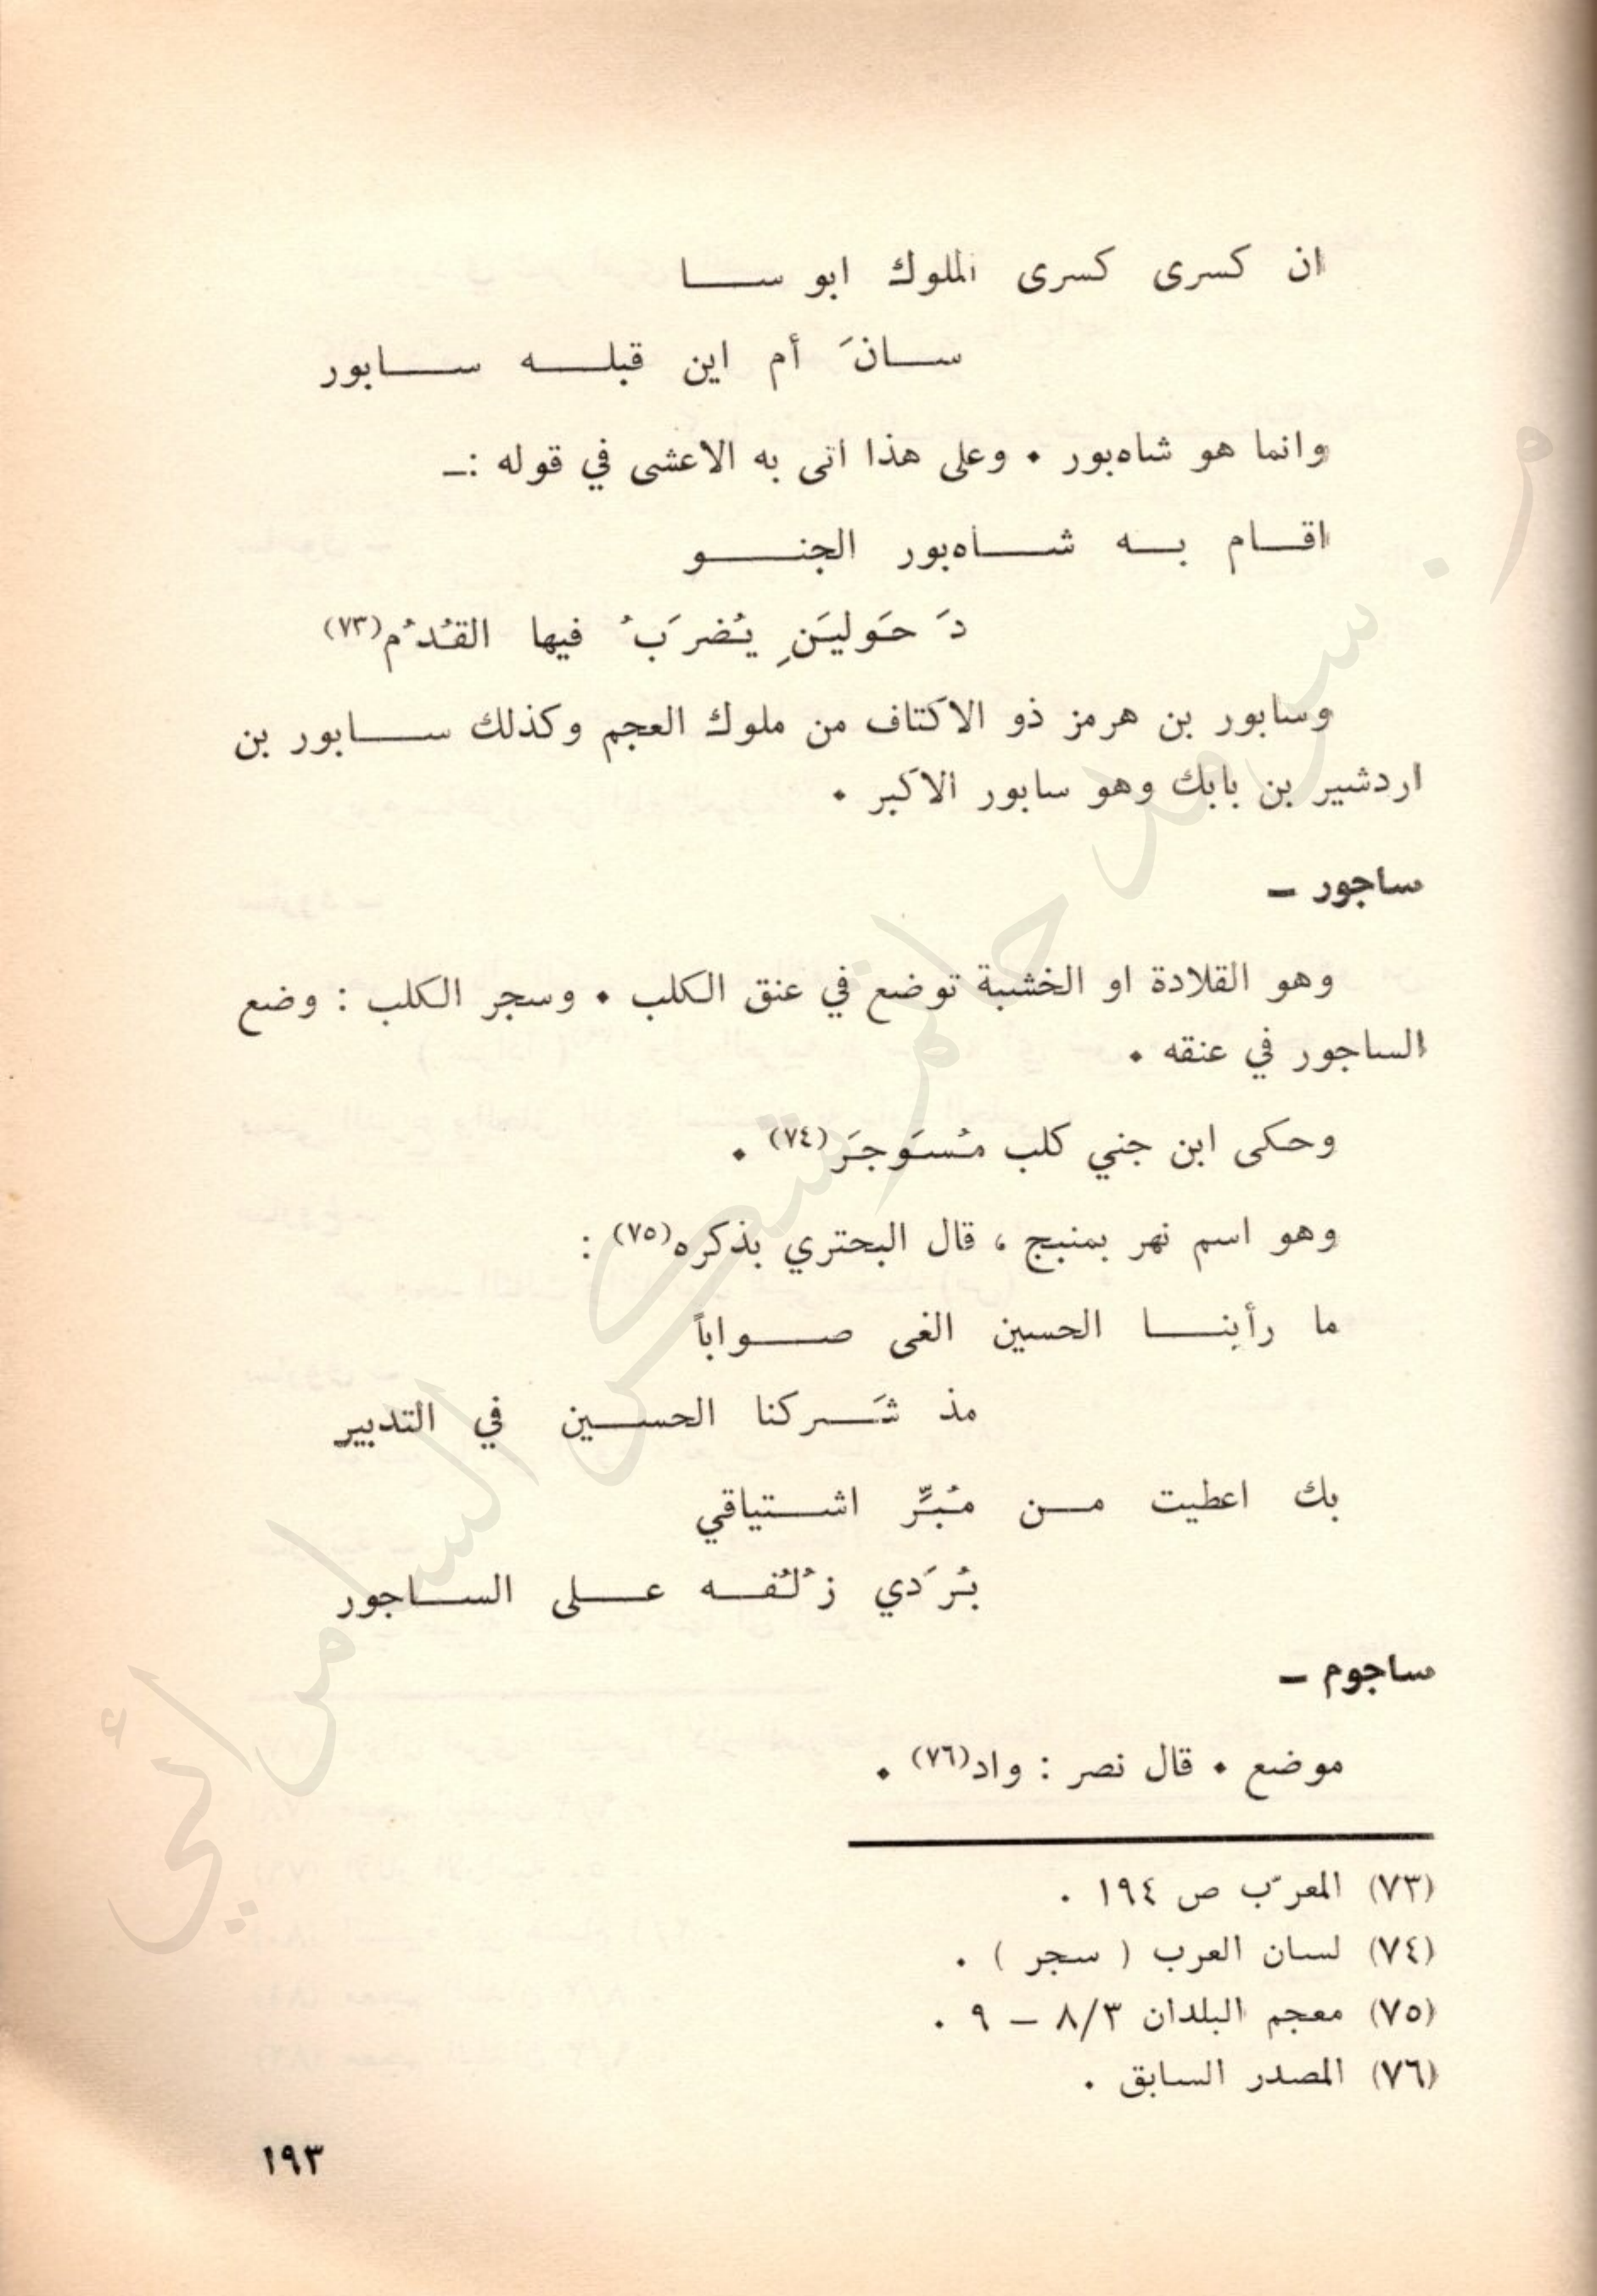 ان كسرى كسرى الملوك ابو سا
سانَ أم اين قبله سابور
وانما هو شاهبور . وعلى هذا اتى به الاعشى في قوله :ـ
اقام به شاهبور الجنو
دَ حَوليَنِ يُضرَبُ فيها القُدُم(٧٣)
وسابور بن هرمز ذو الاكتاف من ملوك العجم وكذلك سابور بن
اردشير بن بابك وهو سابور الاكبر .
ساجور –
وهو القلادة او الخشبة توضع في عنق الكلب . وسجر الكلب : وضع
الساجور في عنقه .
وحكى ابن جني كلب مُسَوجَر(٧٤) .
وهو اسم نهر بمنبج ، قال البحتري بذكره(٧٥) :
ما رأينا الحسين الغى صواباً
مذ شَركنا الحسين في التدبير
بك اعطيت من مُبَرِّ اشتياقي
بُرَدي زُلُفه على الساجور
ساجوم –
موضع . قال نصر : واد(٧٦) .
(٧٣) المعرّب ص ١٩٤ .
(٧٤) لسان العرب ( سجر ) .
(٧٥) معجم البلدان ٨/٣ – ٩ .
(٧٦) المصدر السابق .
١٩٣